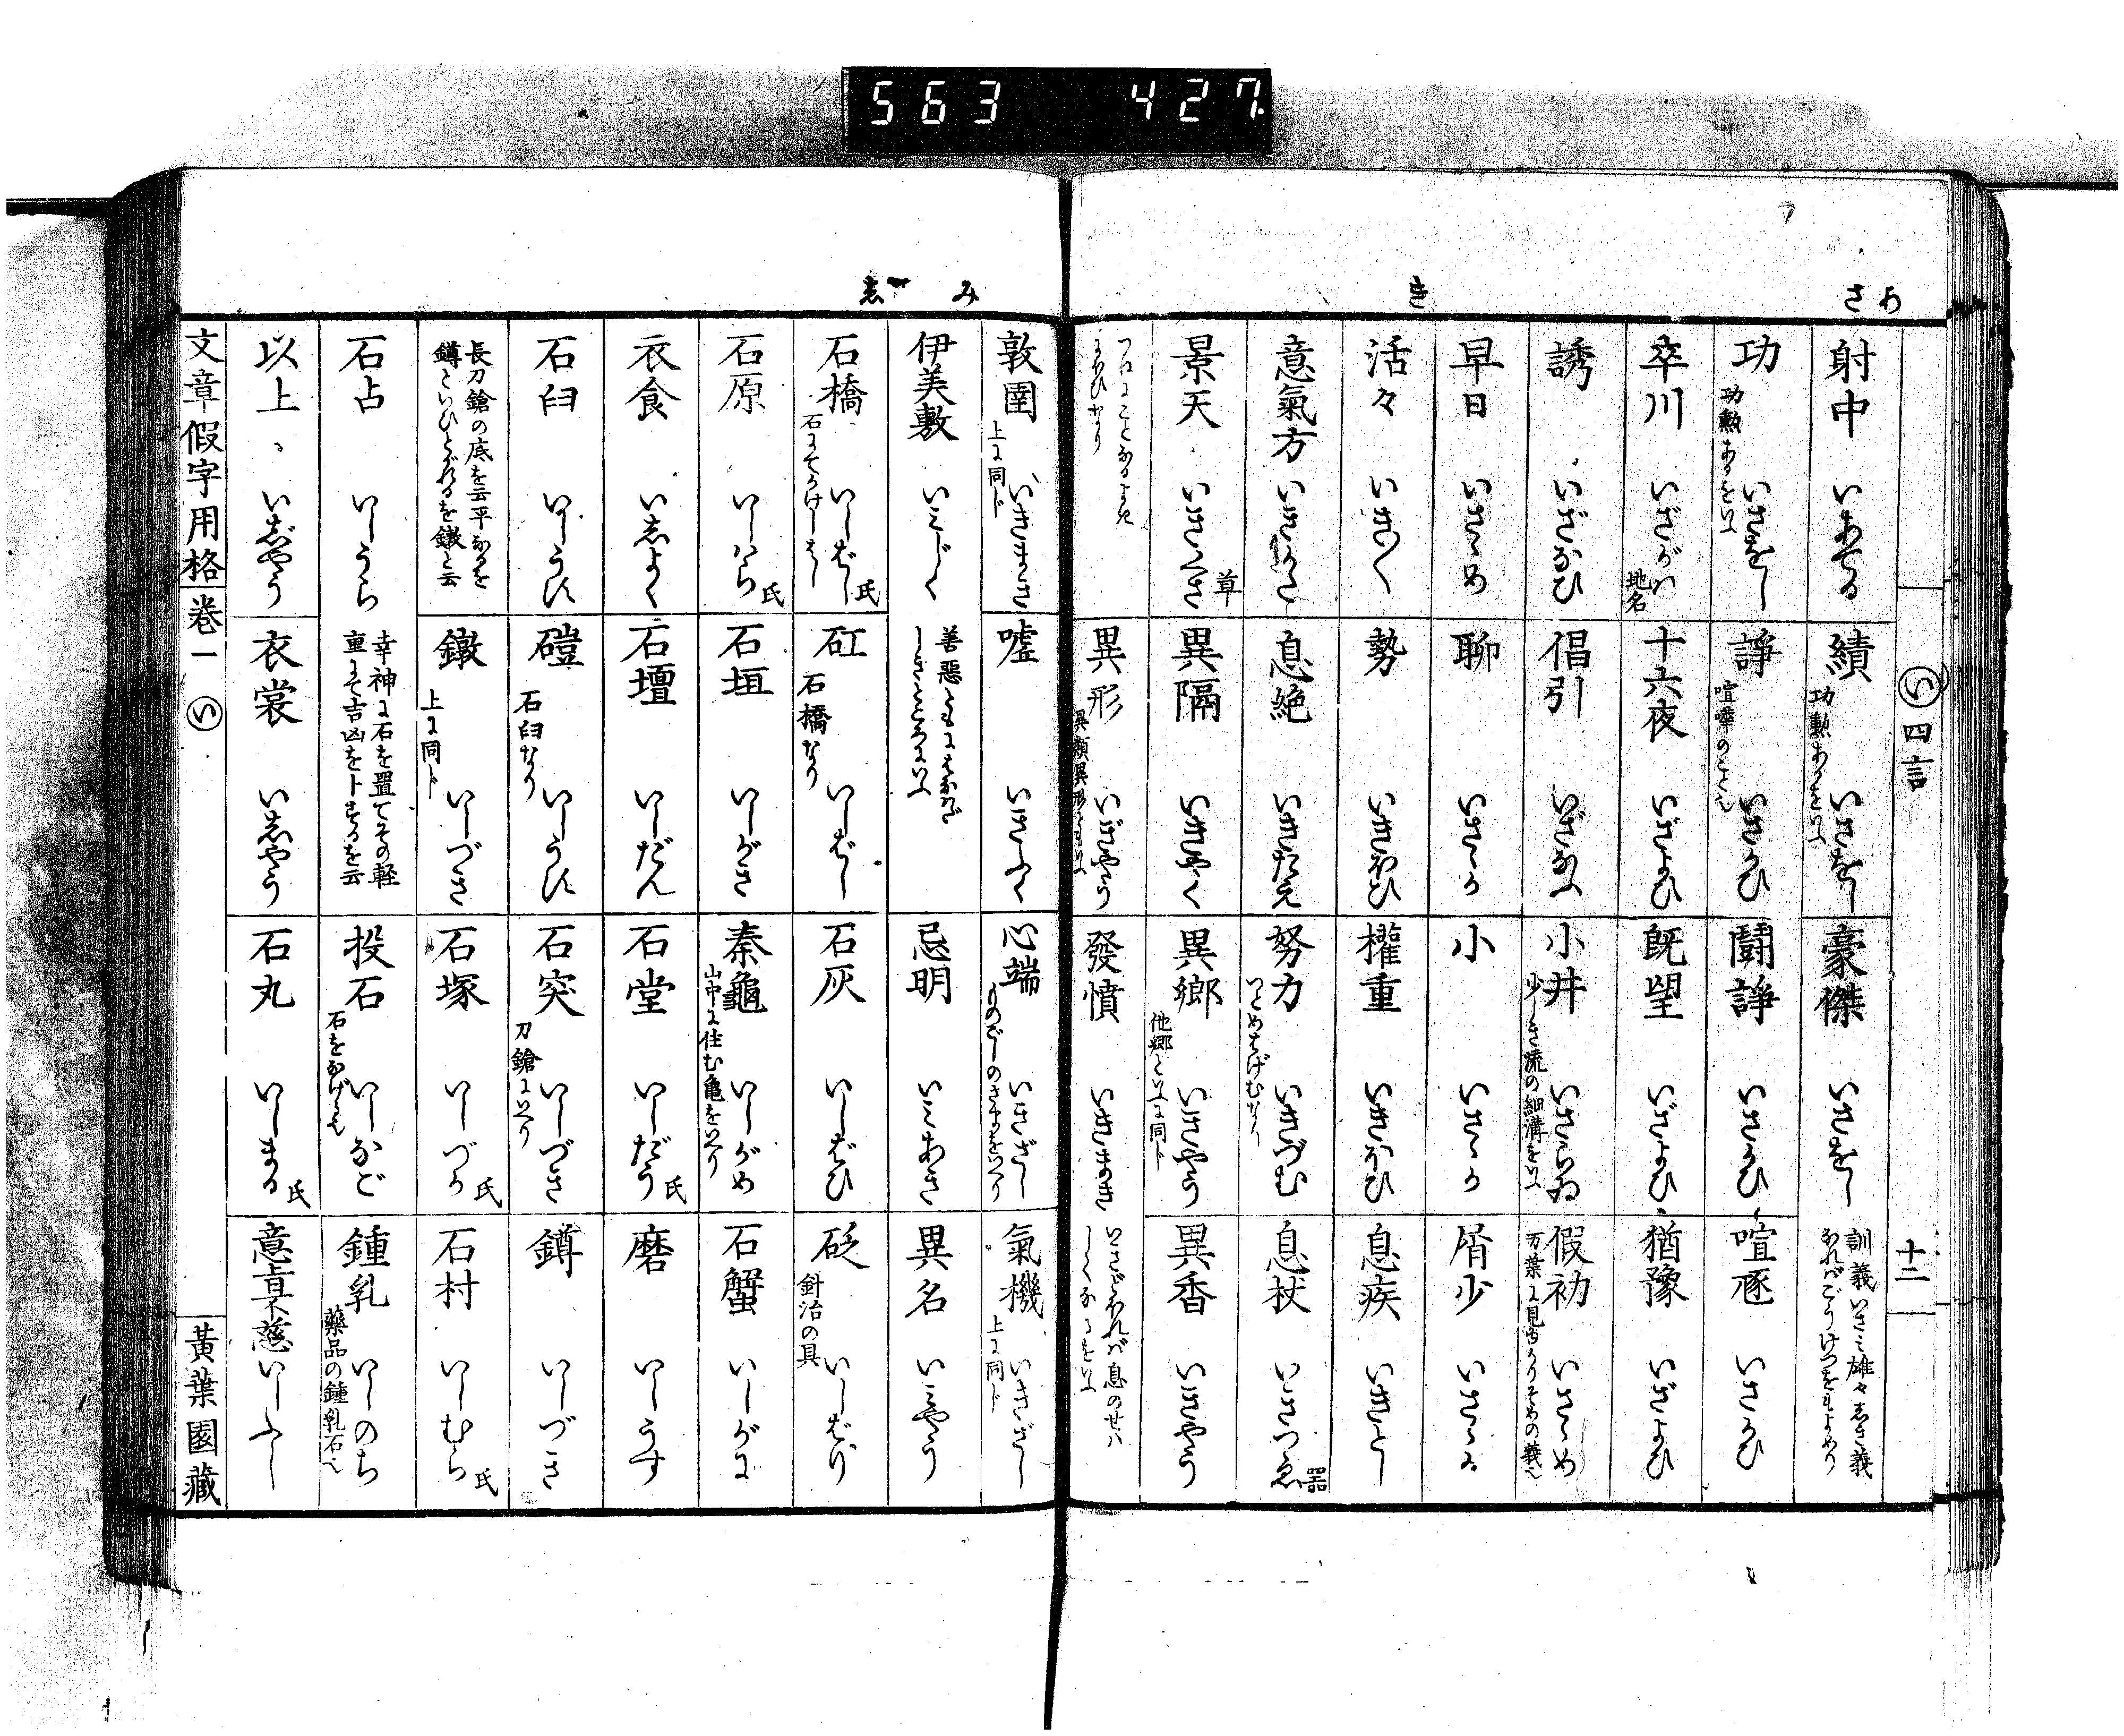 563 427
あ さ
き
み
し
い 四言 十二
射中 いあてる
績 いさをし 功勲あるをいふ
豪傑 いさをし 訓義いさミ雄々しき義
なれバごうけつをもよめり
功 いさをし 功勲あるをいふ
諍 いさかひ 喧嘩のこと也
鬪諍 いさかひ
喧 いさかひ
卒川 いざがハ 地名
十六夜 いざよひ
既望 いざよひ
猶豫 いざよひ
誘 いざなひ
倡引 いざなふ
小井 いさらゐ 少しき流の細溝をいふ
假初 いさゝめ 万葉に見ゆかりそめの義也
早日 いさゝめ
聊 いさゝか
小 いさゝか
屑少 いさゝか
活々 いき〱
勢 いきおひ
權重 いきおひ
息疾 いきとし
意氣方 いきかた
息絶 いきたえ
努力 いきづむ つとめはげむなり
息杖 いきつゑ 器
景天 いきくさ 草
異隔 いきやく
異郷 いきやう 他郷といふに同じ
異香 いきやう
異形 いぎやう 異類異形ともいふ
發憤 いきまき
敦圉 いきまき 上に同じ
嘘 いきふく
心端 いきざし
氣機 いきざし 上に同じ
伊美敷 いミじく 善惡ともに
忌明 いミあき
異名 いミやう
石橋 いしばし 氏
矼 いしばし 石橋なり
石灰 いしばひ
砭 いしばり 針治の具
石原 いしハら 氏
石垣 いしがき
秦龜 いしがめ 山中に住む亀をいへり
石蟹 いしがに
衣食 いしよく
石壇 いしだん
石堂 いしだう 氏
磨 いしうす
石臼 いしうす
磑 いしうす 石臼なり
石突 いしづき 刀鎗にいへり
鐏 いしづき
長刀鎗の底を云平なるを
鐏といひとがれるを鐓と云
鐓 いしづき 上に同じ
石塚 いしづか 氏
石村 いしむら 氏
石占 いしうら 幸神に石を置てその軽
重にて吉凶を卜するを云
投石 いしなご 石をなげ
鍾乳 いしのち 藥品の鍾乳石也
以上 いじやう
衣裳 いしやう
石丸 いしまる 氏
いしふし
文章假字用格 巻一 い 黃葉園藏